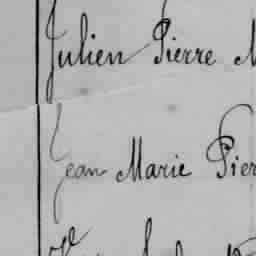 Julien Pierre M
Jean Marie Pier